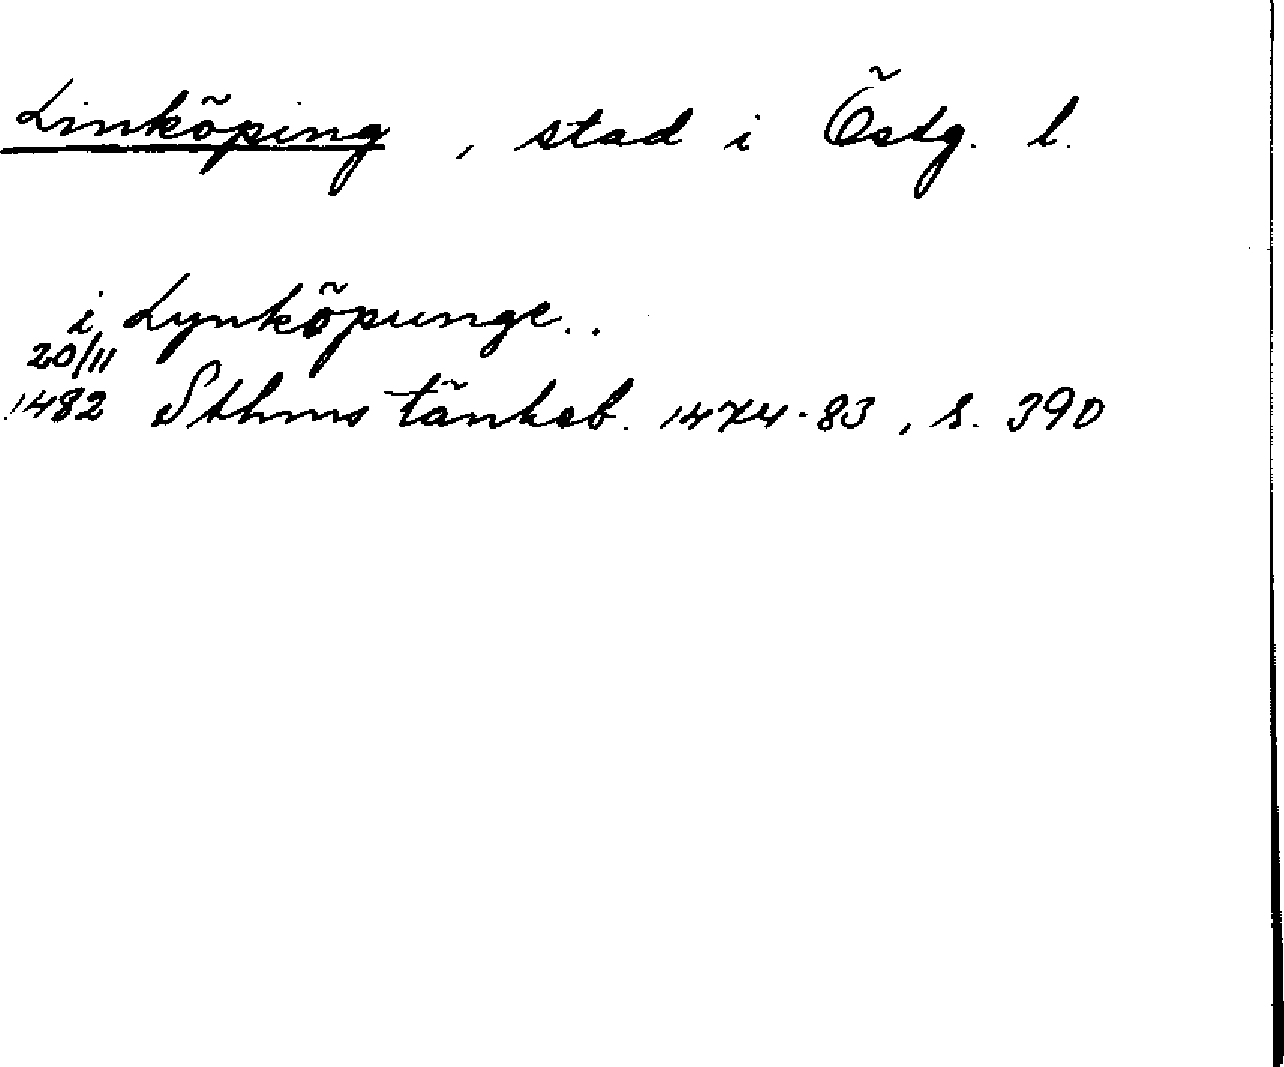 Linköping, stad i Östg. l.
i Lynköpunge..
20/11
1482 Sthms tänkeb. 1474-83, s. 390